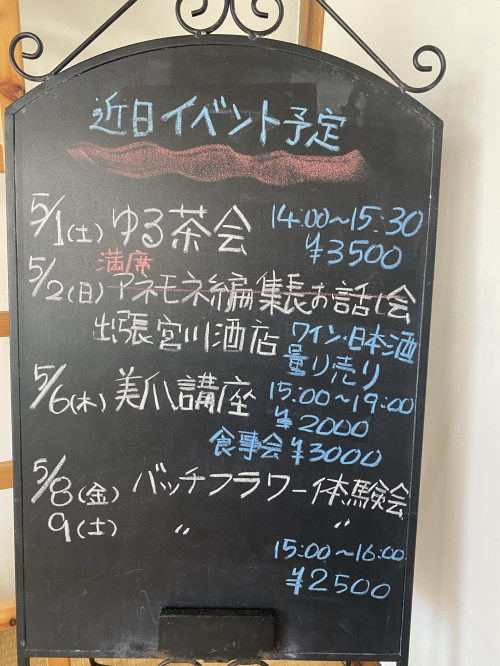 近日イベント予定
5/1(土) ゆる茶会 14:00~15:30
¥3500
満席
5/2(日) アネモネ編集長お話し会
出張宮川酒店 ワイン・日本酒
量り売り
5/6(木) 美爪講座 15:00~19:00
¥2000
食事会 ¥3000
5/8(金) バッチフラワー体験会
9(土) 〃 〃
15:00~16:00
¥2500